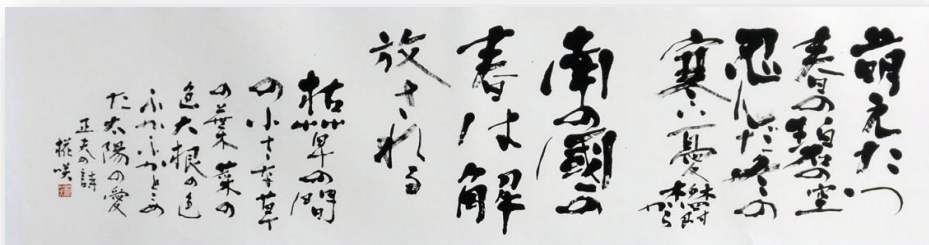 萌えたつ
春の碧い空
忍んだ冬の
寒い憂鬱
から
南の國の
春は解
放される
枯草の間
の小さな草
の葉 菜の
色大根の色
ふかぶかとそめ
た太陽の愛
正夫の詩